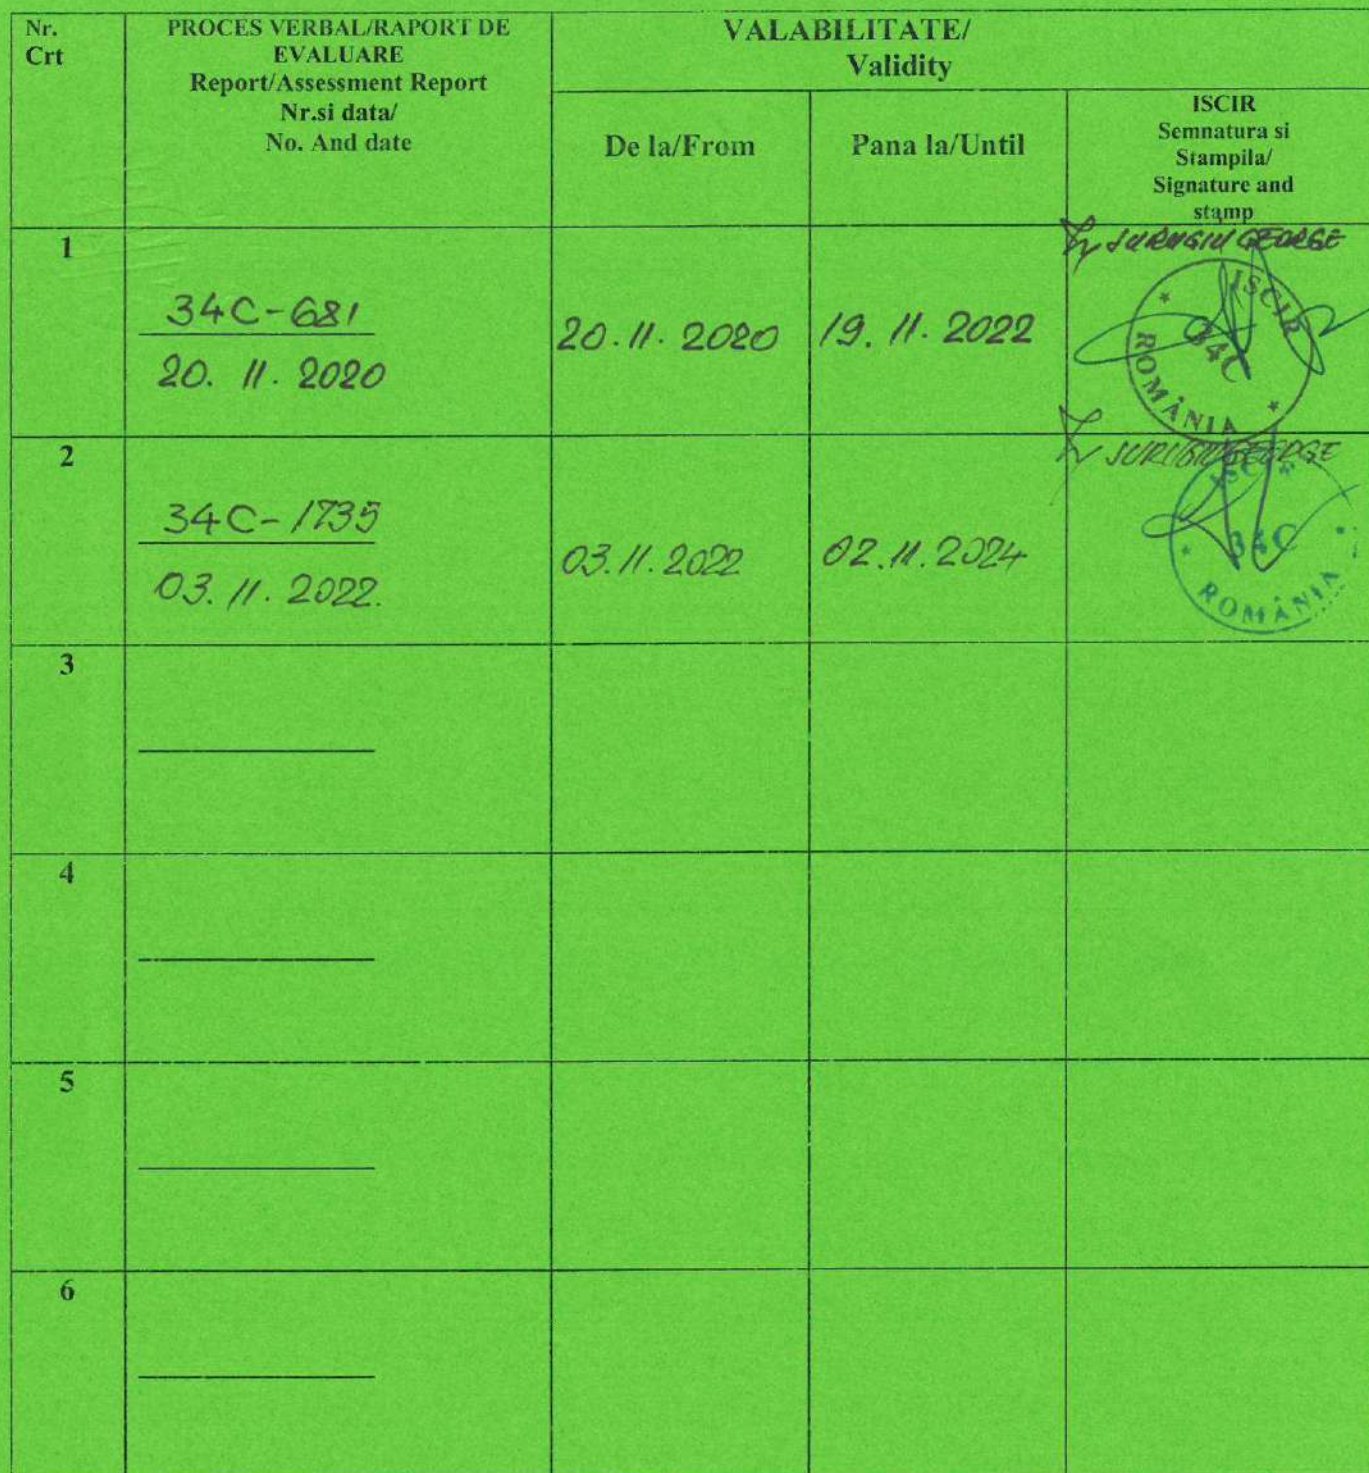 Nr.
Crt
PROCES VERBAL/RAPORT DE
EVALUARE
Report/Assessment Report
Nr.si data/
No. And date
VALABILITATE/
Validity
De la/From
Pana la/Until
ISCIR
Semnatura si
Stampila/
Signature and
stamp
1
34C-681
20. 11. 2020
20.11.2020
19. 11. 2022
SURUGIU GEORGE
ISCIR
34C
ROMÂNIA
2
34C-1735
03. 11. 2022.
03.11.2022
02.11.2024
SURUGIU GEORGE
ISCIR
34C
ROMÂNIA
3
4
5
6